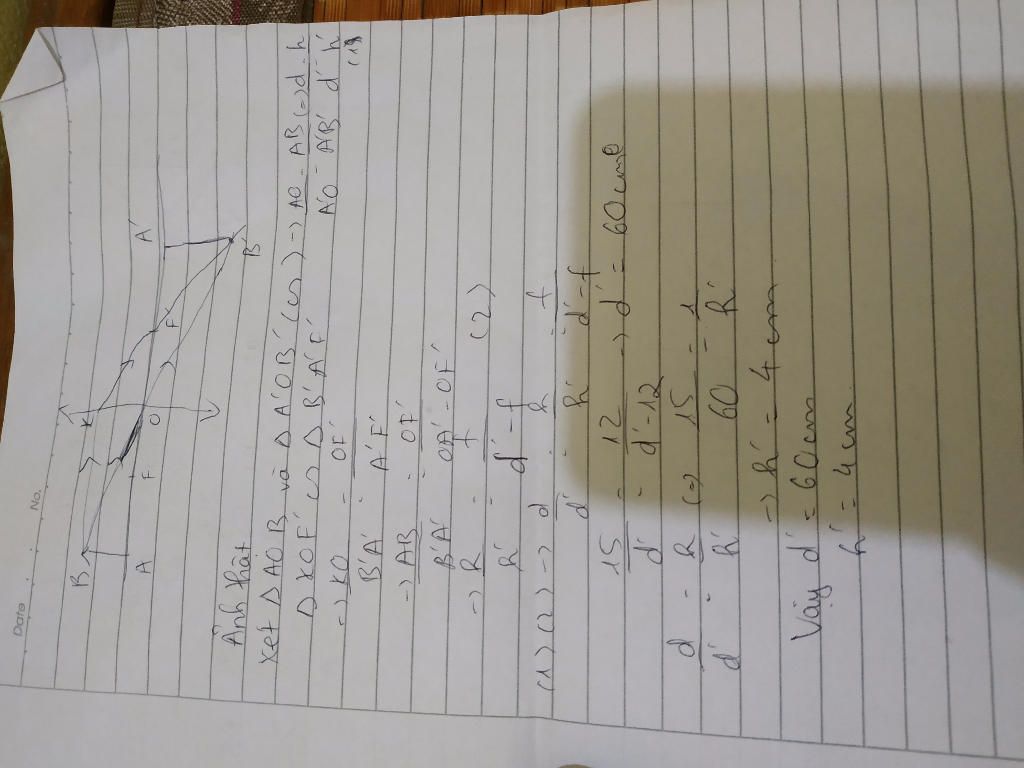 Date No.
B K A'
A F O F' B'
Ảnh thật
Xét Δ AOB và Δ A'OB' (∽) → AO/A'O = AB/A'B' (=) d/d' = h/h' (1)
Δ KOF' ∽ Δ B'A'F'
→ KO/B'A' = OF'/A'F'
→ AB/B'A' = OF'/OA'-OF'
→ h/h' = f/d'-f (2)
(1)(2) → d/d' = h/h' = f/d'-f
15/d' = 12/d'-12 → d' = 60cm
d/d' = h/h' (=) 15/60 = 1/h'
→ h' = 4 cm
Vậy d' = 60cm
h' = 4cm